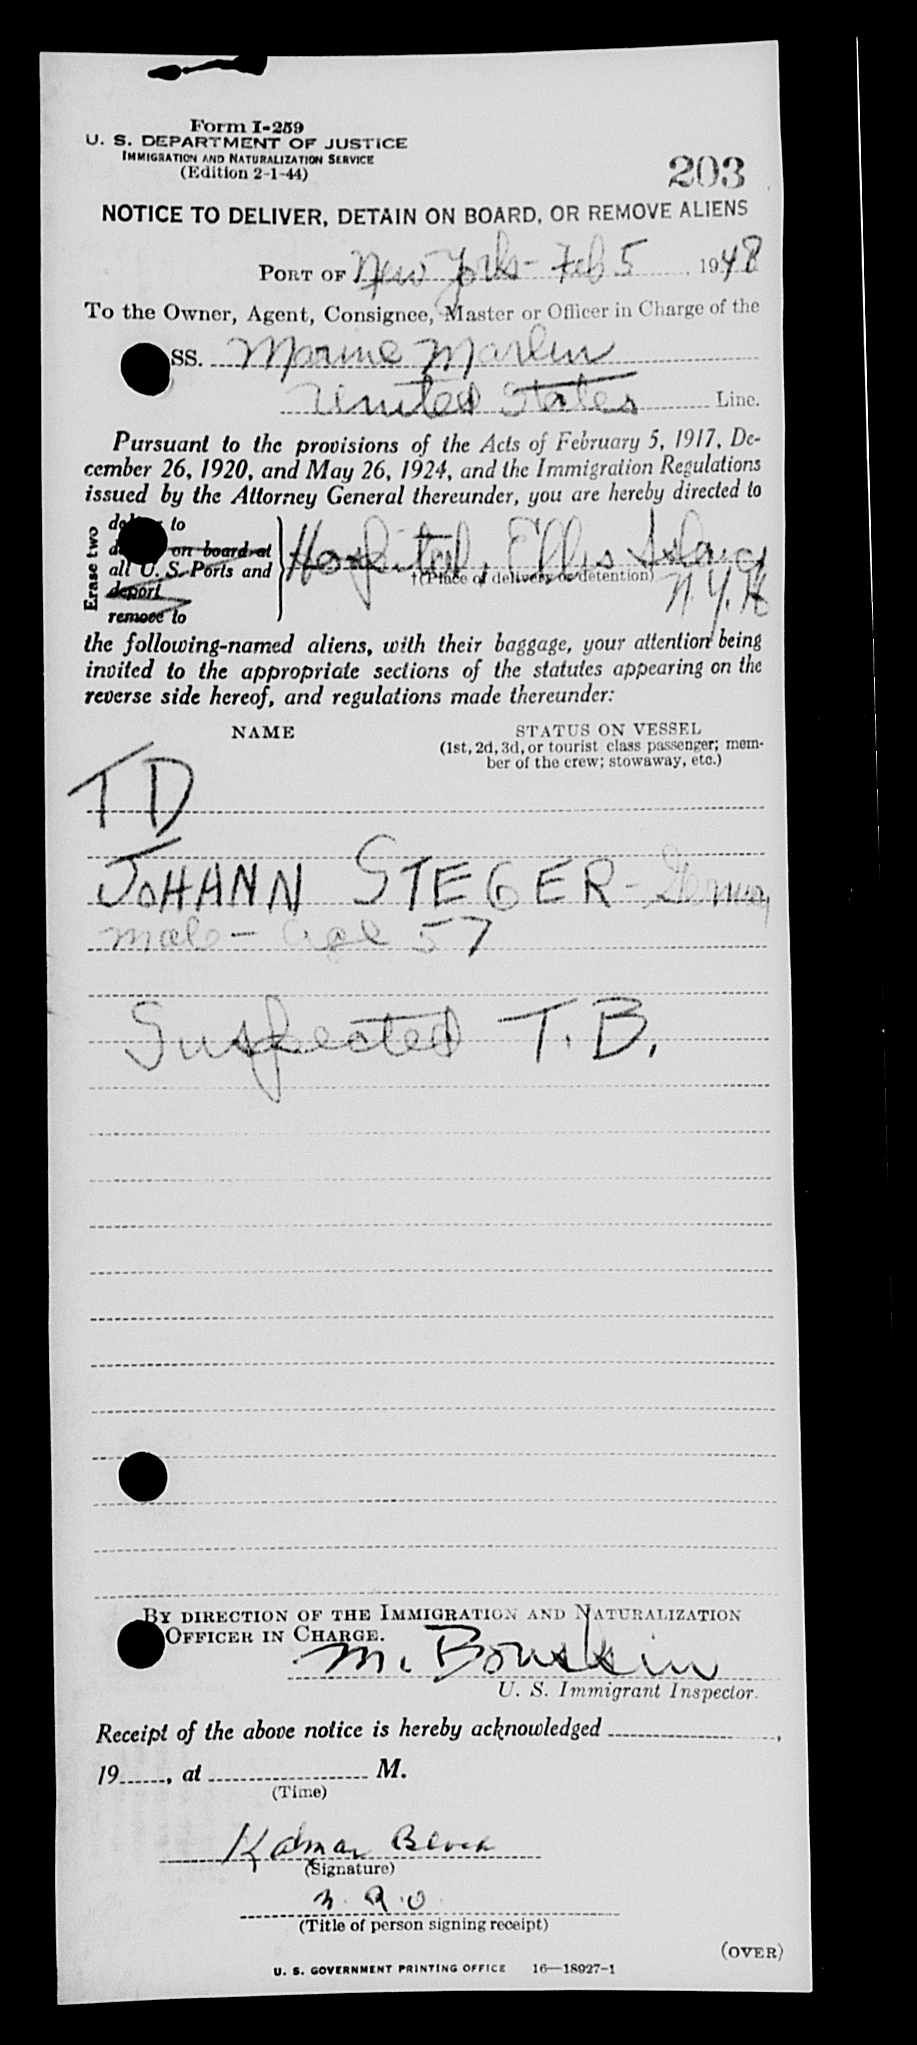 Form I-259
U. S. DEPARTMENT OF JUSTICE
IMMIGRATION AND NATURALIZATION SERVICE
(Edition 2-1-44)
203
NOTICE TO DELIVER, DETAIN ON BOARD, OR REMOVE ALIENS
PORT OF New York - Feb 5, 1948
To the Owner, Agent, Consignee, Master or Officer in Charge of the
SS. Marine Marlin
United States Line.
Pursuant to the provisions of the Acts of February 5, 1917, De-
cember 26, 1920, and May 26, 1924, and the Immigration Regulations
issued by the Attorney General thereunder, you are hereby directed to
Erase two
to
on board at
all U. S. Ports and
deport
remove to
Hospital, Ellis Island
†(Place of delivery or detention)
N.Y.H
the following-named aliens, with their baggage, your attention being
invited to the appropriate sections of the statutes appearing on the
reverse side hereof, and regulations made thereunder:
NAME
STATUS ON VESSEL
(1st, 2d, 3d, or tourist class passenger; mem-
ber of the crew; stowaway, etc.)
TD
JOHANN STEGER -
male - age 57
Suspected T.B.
BY DIRECTION OF THE IMMIGRATION AND NATURALIZATION
OFFICER IN CHARGE.
M.
U. S. Immigrant Inspector.
Receipt of the above notice is hereby acknowledged ,
19 , at M.
(Time)
Kalman
(Signature)
(Title of person signing receipt)
(OVER)
U. S. GOVERNMENT PRINTING OFFICE 16—18927-1